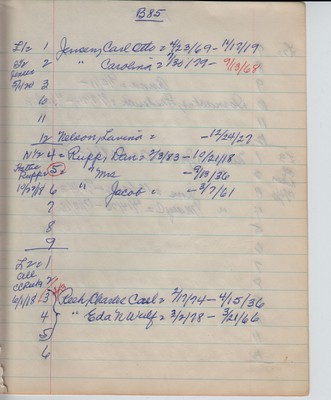 B85
L 1/2 1 Jensen, Carl Otto = 4/23/69 - 11/17/19
2 " Carolina = 9/30/79 - 9/13/68
Jensen
3
10
11
12 Nelson, Lavina = - 12/24/27
N 1/2 4 = Rupp, Dan = 2/3/83 - 10/21/18
Rupp = 5 = " Mrs - 9/13/36
10/27/18 6 " Jacob = - 3/7/61
7
8
9
L 2 = 1
all
2
6/1/18 3 Charles Carl = 2/17/74 - 4/15/36
4 " Eda N Wulf = 3/2/78 - 3/21/66
5
6